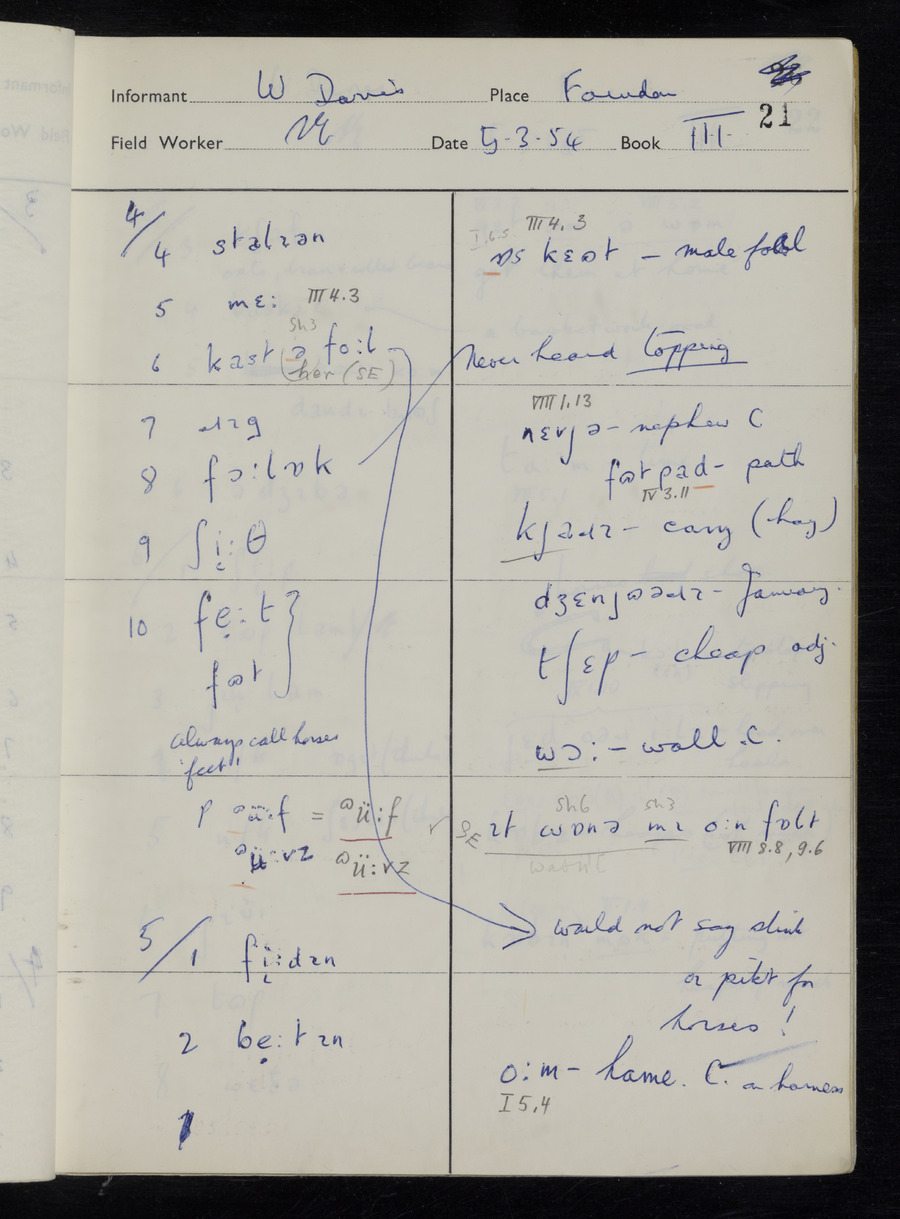 Informant W Davies Place Fownhope
21
Field Worker Date 5.3.54 Book III
4/
4 stalɪən
5 mɛ: III 4.3
Sh3
6 kast ə fo:l
her (SE)
7 ɹɪg
8 fɔ:lɒk
9 ʃi:θ
10 fe:t
fɷt
always call horses
'feet'
p ɷü:f = ɷü:f
ɷü:vz ɷü:vz
5/
1 fi:dɪn
2 be:tɪn
I.6.5 III 4.3
ɒs kɛɷt – male foal
Never heard topping
VIII 1.13
nɛvjə – nephew C
fɷtpad – path
IV 3.11
kjaɹɪ – carry (hay)
dʒɛnjɷəɹɪ – January
tʃɛp – cheap adj.
wɔ: – wall C.
Sh6 Sh3
✓ SE ɪt wɒnə mɪ o:n fɒlt
wasn't VIII 8.8, 9.6
would not say slink
or pikt for
horses!
o:m – hame. C. on harness
I 5,4